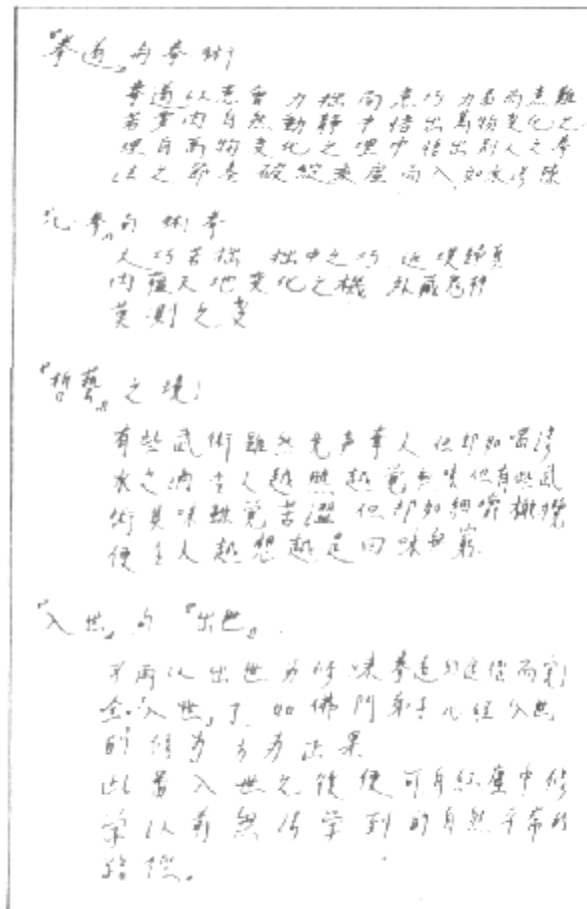 『拳道』与拳術
拳道以意會 力拙而意巧 力易而意難
若要内自然動静中悟出萬物变化之
理自萬物变化之理中悟出別人之拳
法之節奏 破綻乘虛而入 如水
『化拳』与術拳
人巧若拙 拙中之巧
内蘊天地变化之機 外藏
莫測之变
『哲藝』之境:
有些武術雖然先声奪人 但却如喝清
水之酒 令人越 越覚無味 但有些武
術其味雖覚苦澀 但却如細嚼橄欖
便令人越想越是回味無窮
『入世』与『出世』
不再以出世 而完
全『入世』了 如佛門弟子 入世
的修为方为正果
此番入世之後便可自紅塵中修
学以前無法学到的自然平常的
路徑。